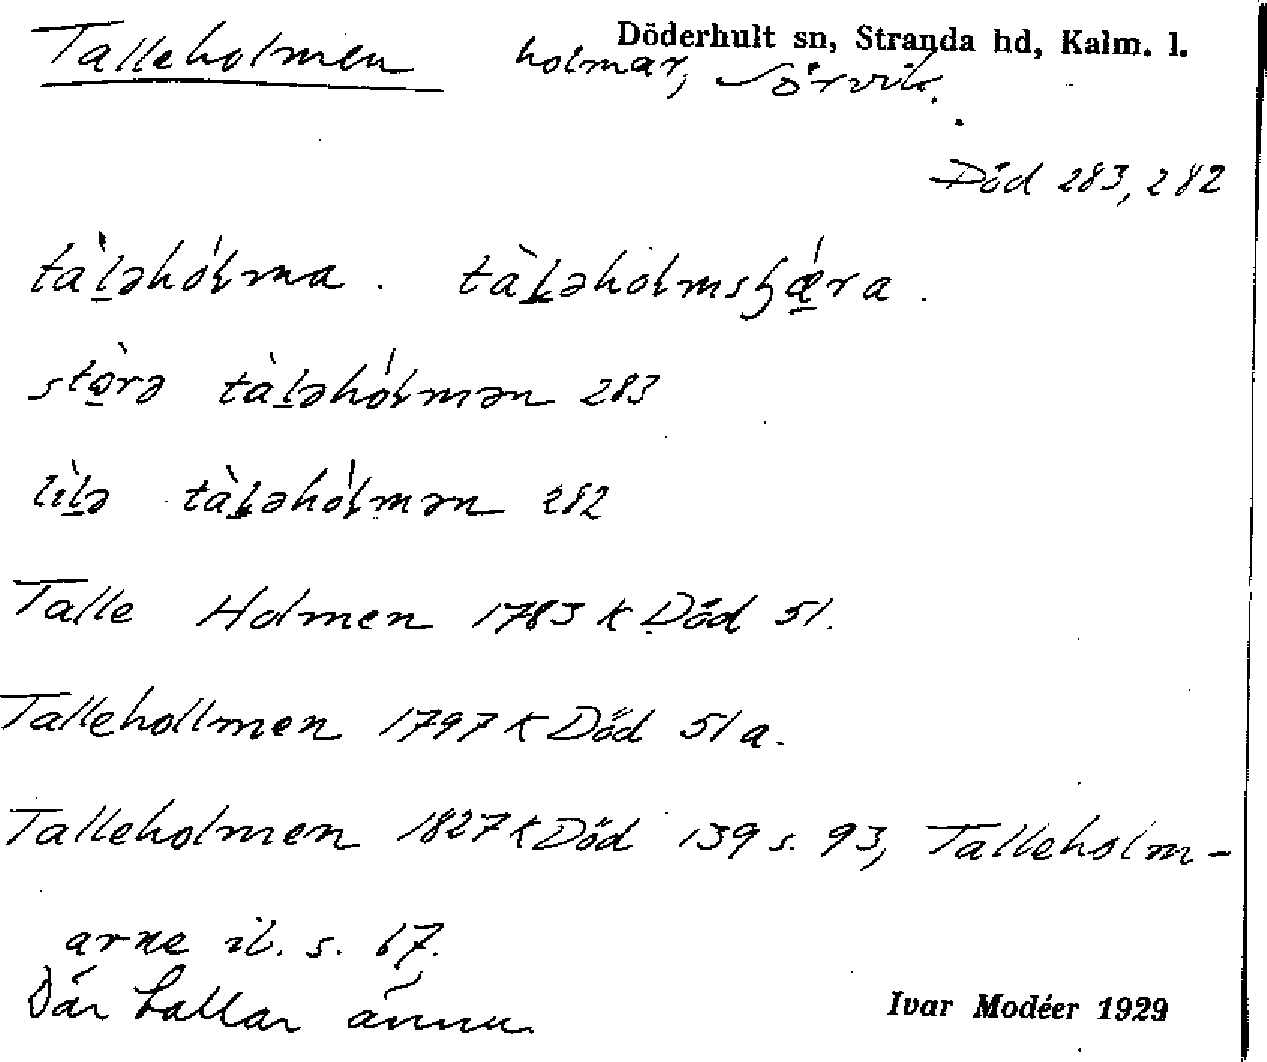 Talleholmen holmar, Sörvik. Döderhult sn, Stranda hd, Kalm. l.
Död 283, 282
tàḻəhóɫma. tàḻəhoɫmsꜧǽ̱ra.
stò̱rə tàḻəhóɫmən 283
lìḻə tàḻəhóɫmən 282
Talle Holmen 1783 K Död 51.
Tallehollmen 1797 K Död 51a.
Talleholmen 1827 K Död 139 s. 93, Talleholm-
arne ib. s. 67.
Där tallar ännu.
Ivar Modéer 1929